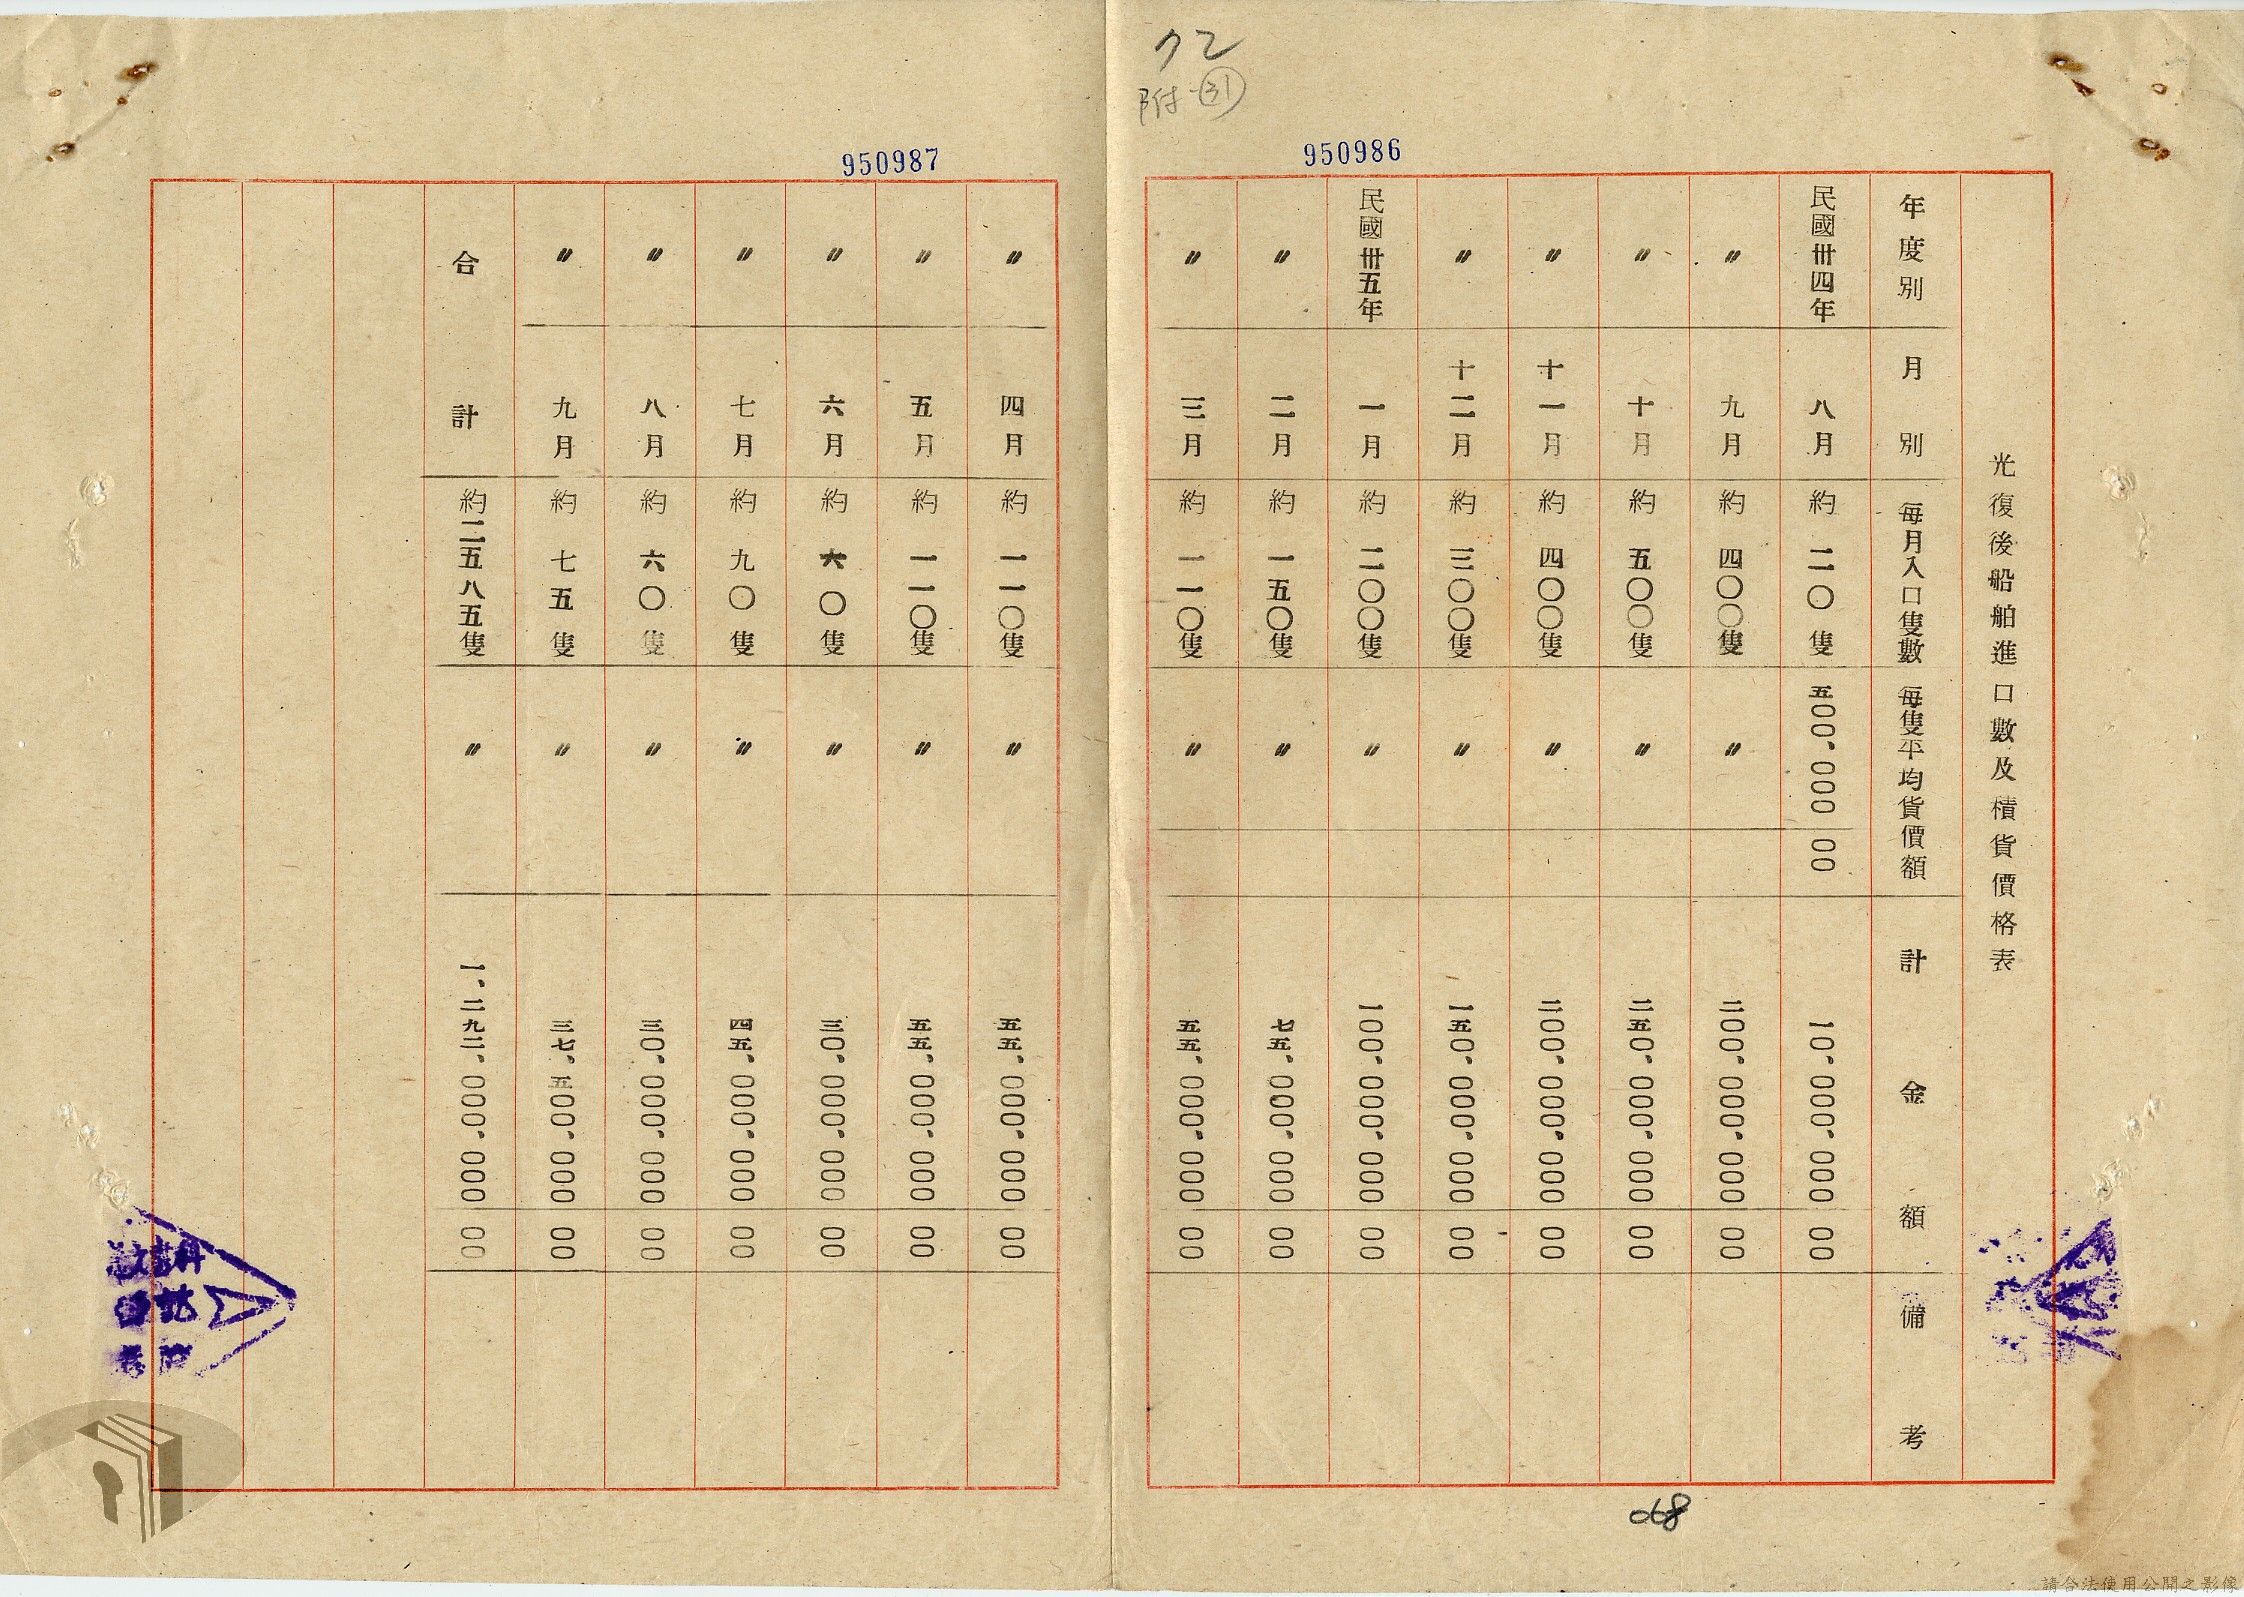 光復後船舶進口數及積貨價格表
年度別 月別 每月入口隻數 每隻平均貨價額 計金額 備考
民國卅四年 八月 約二〇隻 五〇〇、〇〇〇 〇〇 一〇、〇〇〇、〇〇〇 〇〇
〃 九月 約四〇〇隻 〃 二〇〇、〇〇〇、〇〇〇 〇〇
〃 十月 約五〇〇隻 〃 二五〇、〇〇〇、〇〇〇 〇〇
〃 十一月 約四〇〇隻 〃 二〇〇、〇〇〇、〇〇〇 〇〇
〃 十二月 約三〇〇隻 〃 一五〇、〇〇〇、〇〇〇 〇〇
民國卅五年 一月 約二〇〇隻 〃 一〇〇、〇〇〇、〇〇〇 〇〇
〃 二月 約一五〇隻 〃 七五、〇〇〇、〇〇〇 〇〇
〃 三月 約一一〇隻 〃 五五、〇〇〇、〇〇〇 〇〇
〃 四月 約一一〇隻 〃 五五、〇〇〇、〇〇〇 〇〇
〃 五月 約一一〇隻 〃 五五、〇〇〇、〇〇〇 〇〇
〃 六月 約六〇隻 〃 三〇、〇〇〇、〇〇〇 〇〇
〃 七月 約九〇隻 〃 四五、〇〇〇、〇〇〇 〇〇
〃 八月 約六〇隻 〃 三〇、〇〇〇、〇〇〇 〇〇
〃 九月 約七五隻 〃 三七、五〇〇、〇〇〇 〇〇
合計 約二五八五隻 〃 一、二九二、〇〇〇、〇〇〇 〇〇
附
31
950986
950987
068
請合法使用公開之影像